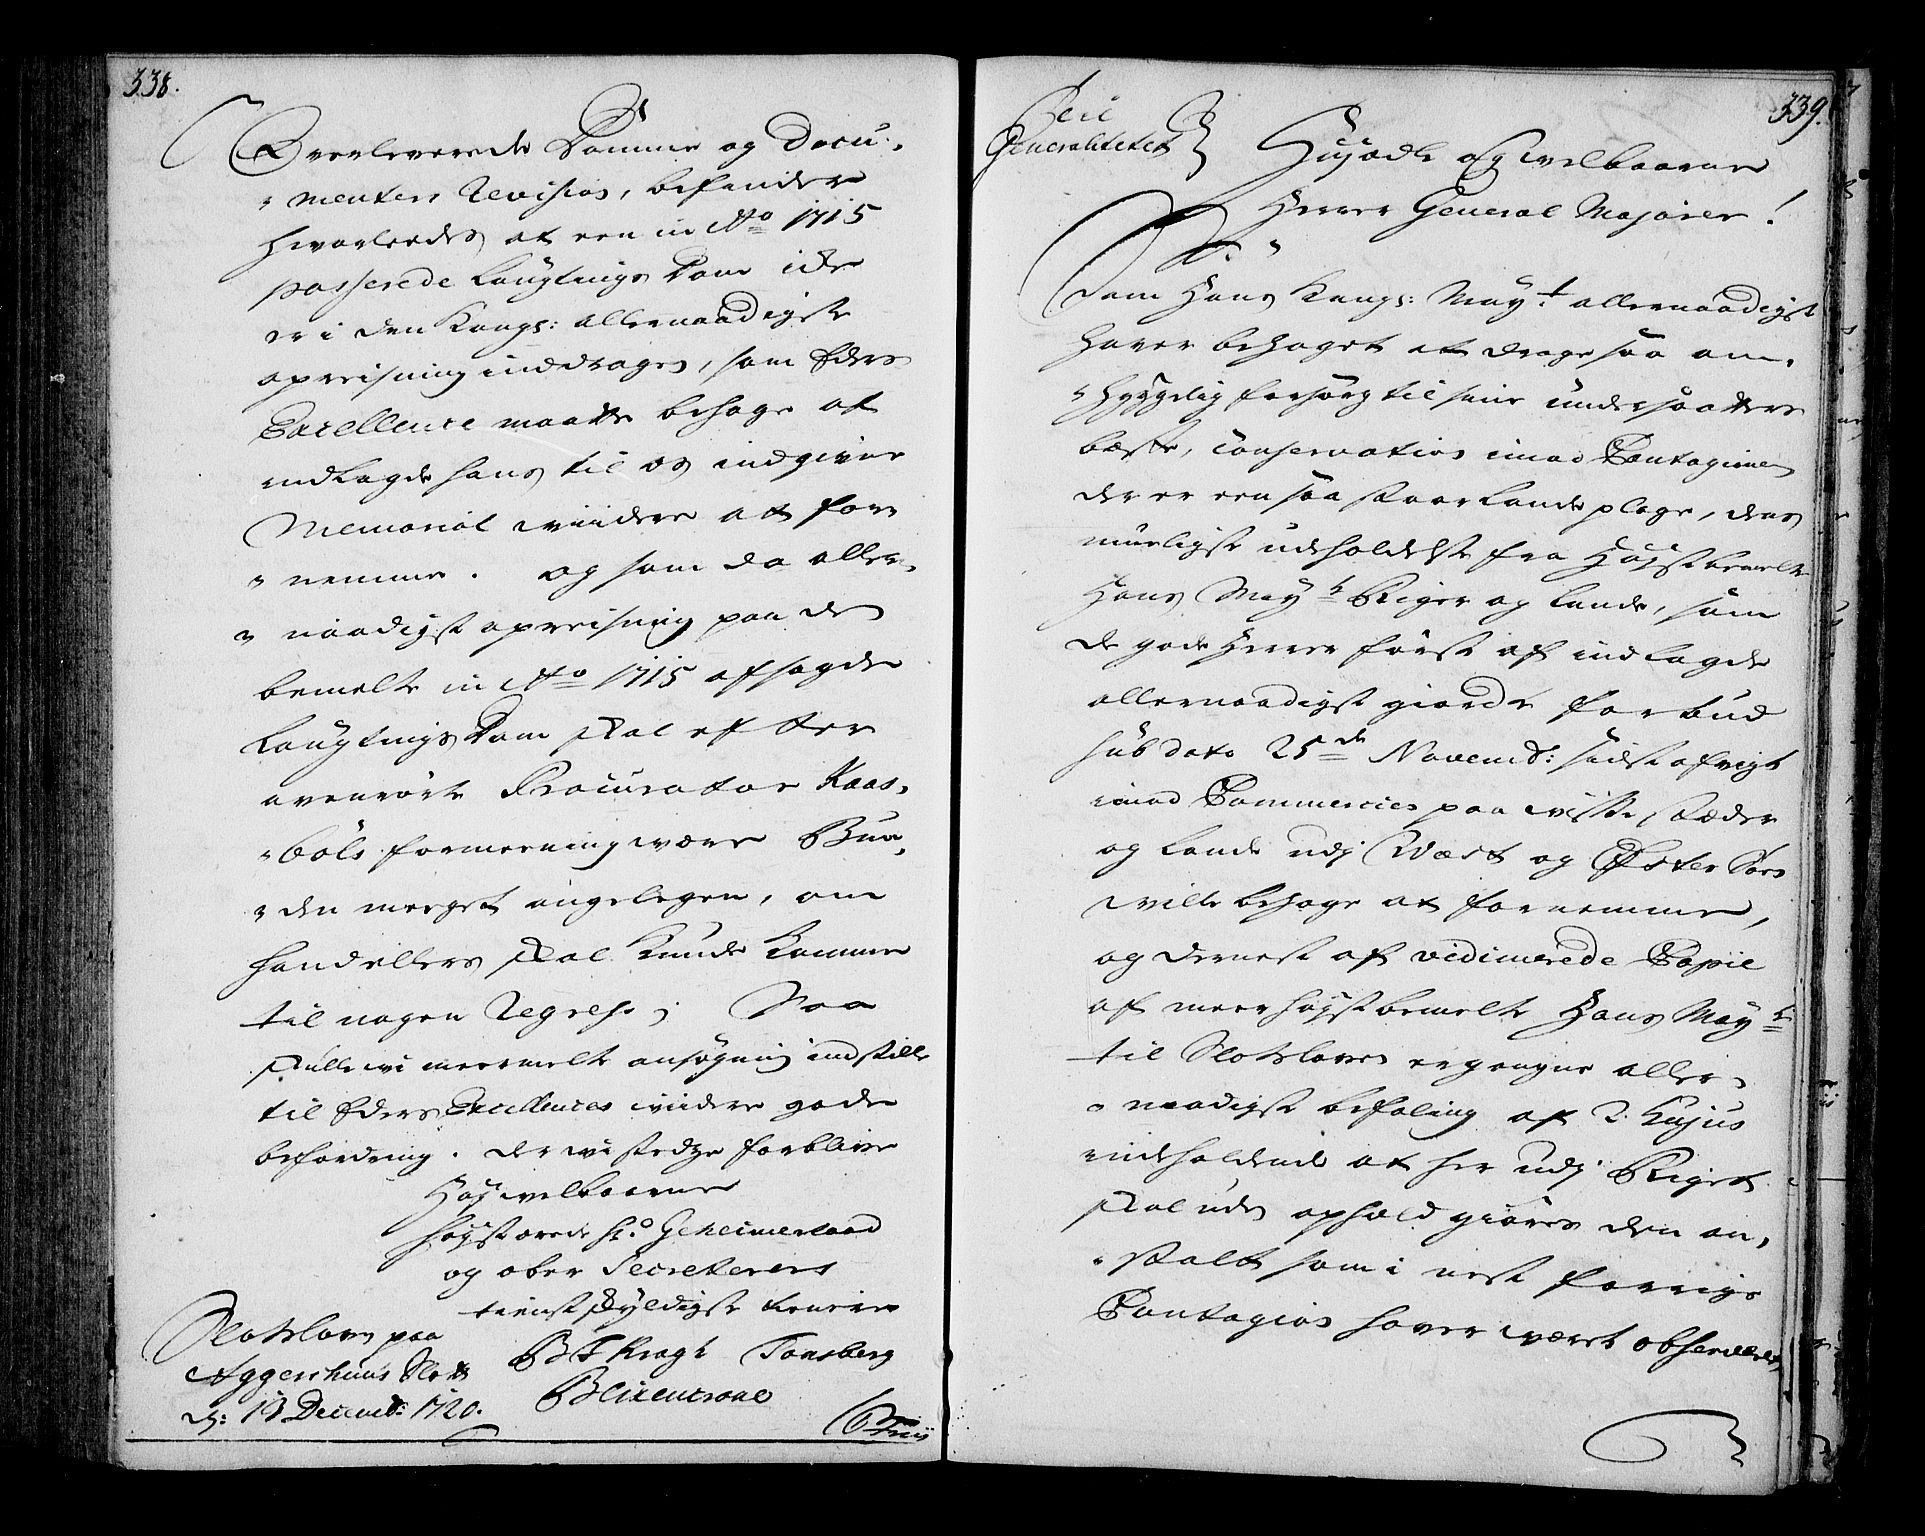 338.
Overleverede Domme og Docu-
menters Revision, befinder
hvorledes at een in Ao 1715
passerede Laugtings Dom icke
er i den Kongs: allernaadigste
opreisning inddrages, som Eders
Excellence maatte behage af
indlagde hans til os indgivne
Memorial viidere at for-
nemme. og som da aller-
naadigst opreisning paa de
bemelte in Ao 1715 afsagde
Laugtings Dom skal efter
ovenrörte Procurator Kaas-
böls formeening være Bun-
den meeget angelegen, om
hand ellers skal kunde komme
til nogen Regress; Saa
skulle wi meermelte ansøgning indstille
til Eders Excellences viidere gode
befordring. der wi stedze forblive
Høywelbaarne
høystærede Hr. Geheimeraad
og ober Secreterers
tienstskyldigste tienere
Slotsloven paa
Aggershuus Slott
d: 13 Decemb: 1720.
B F Kragh Tonsberg
Blixencrone

339.
Til
Generalitetet
Høyædle og Welbaarne
Herrer General Majorer!
Som Hans Kongs: Mayt. allernaadigst
haver behaget at drage saa om-
hyggelig forsorg til sine undersaatters
bæste, conservation imod Contagionen
der er een saa stoer Lande plage, dens
mueligste udeholdelse fra Høystbemelte
Hans Mayts Riger og Lande, som
de gode Herrer først af indlagde
allernaadigst giorde forbud
sub dato 25de Novemb: sidst afvigt
imod Commercien paa visse stæder
og Lande udj West og Øster Søen
ville behage at fornemme,
og dernest af vedimerede Copie
af meerhøystbemelte Hans Mayts
til Slotsloven ergangne aller-
naadigste befaling af 2. hujus
indeholdende at her udj Riget
skal uden ophold giøres den an-
stalt som i nest forrige
Contagion haver været observeret,